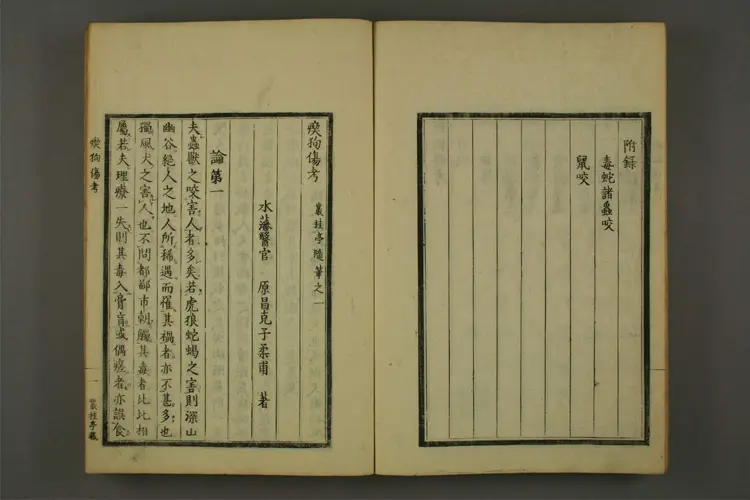 附錄
毒蛇諸蟲咬
鼠咬
瘈狗傷考
叢桂亭隨筆之一
水藩醫官 原昌克子柔甫 著
論第一
夫蟲獸之咬害人者多矣若虎狼蛇蝎之害則深山
幽谷絕人之地人所稀遇而罹其禍者亦不甚多也
獨風犬之害人也不問都鄙市朝觸其毒者比比相
屬若夫理療一失則其毒入膏肓或偶瘥者亦誤食
瘈狗傷考
一
叢桂亭藏